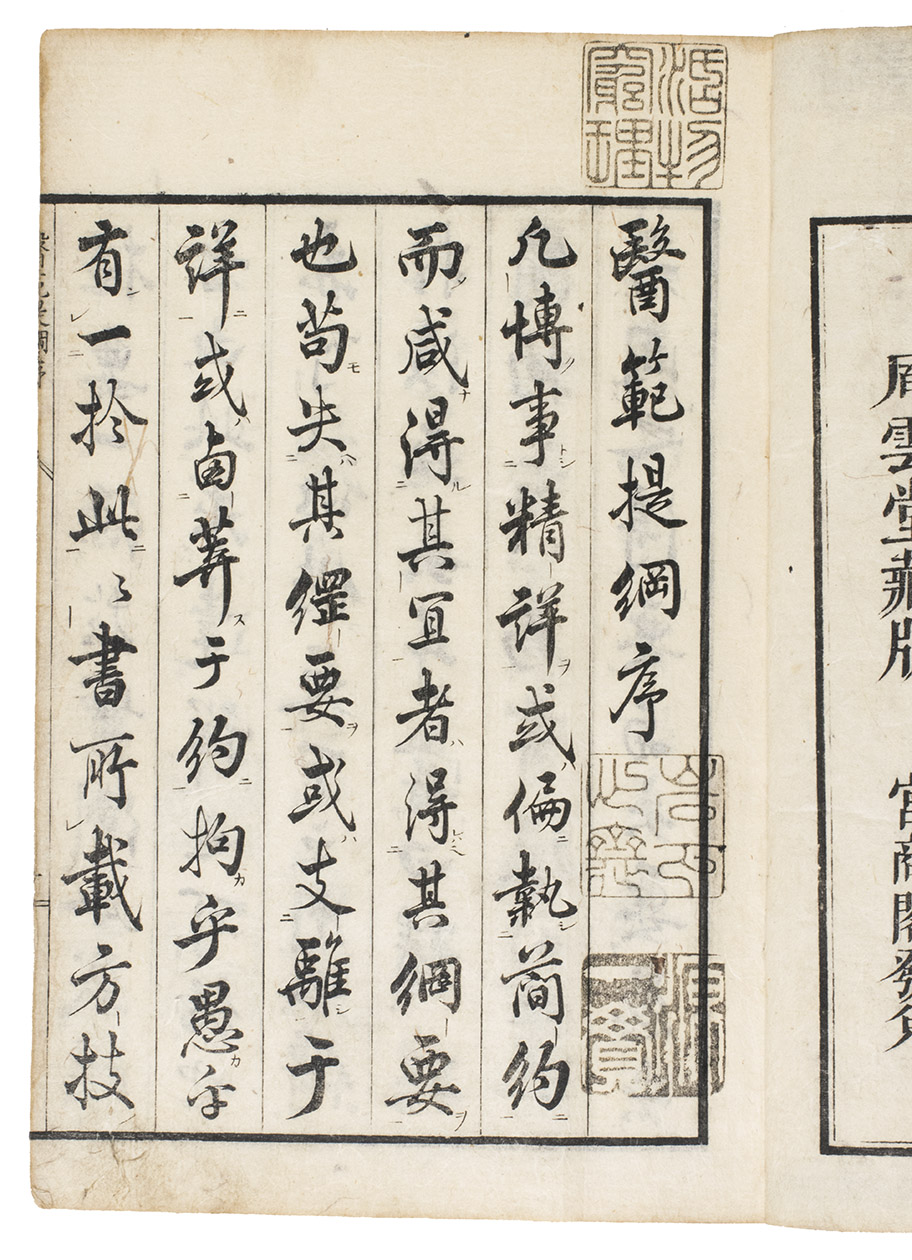 雲堂藏版
宮商閣發兌
活物窮理
醫範提綱序
凡博事精詳或偏執簡約
而咸得其宜者得其綱要
也苟失其要或支離于
詳或鹵莽于約拘乎愚乎
有一於此〻書所載方技